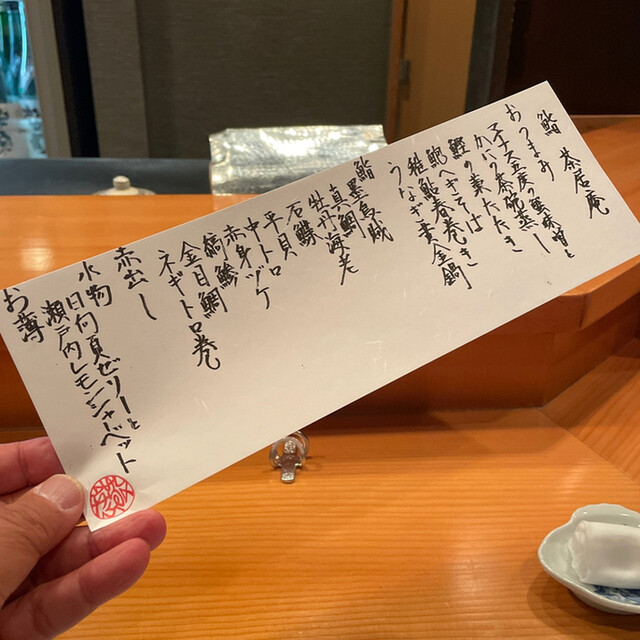 鮨 茶居庵
おつまみ
子ナス豆腐の蟹味噌と
かにの茶碗蒸し
鰹の藁たたき
鮑へぎそば
稚鮎春巻き
うなぎ黄金鍋
鮨
墨烏賊
真鯛
牡丹海老
石鰈
平貝
中トロ
赤身ヅケ
縞鯵
金目鯛
ネギトロ巻
赤出し
水物
日向夏ゼリーと
瀬戸内レモンシャーベット
お薄